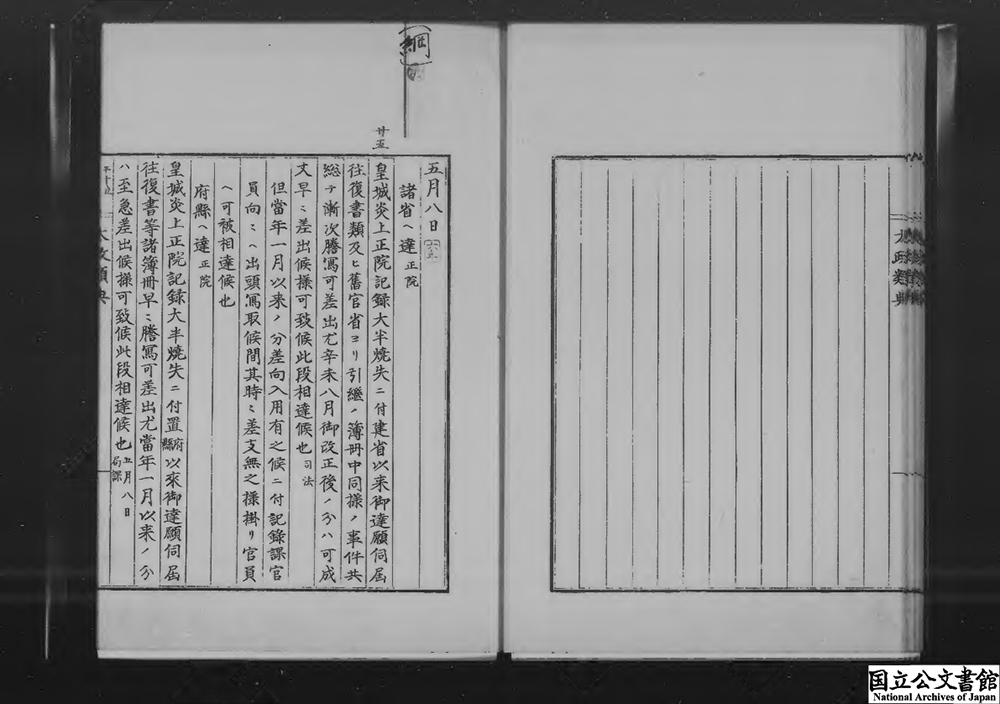 太政類典
綱
廿五
五月八日
諸省ヘ達 正院
皇城炎上正院記録大半焼失ニ付建省以来御達願伺届
往復書類及ヒ舊官省ヨリ引継ノ簿冊中同様ノ事件共
総テ漸次謄寫可差出尤辛未八月御改正後ノ分ハ可成
丈早ミ差出候様可致候此段相達候也 司法
但當年一月以来ノ分差向入用有之候ニ付記録課官
員向ミヘ出頭寫取候間其時ミ差支無之様掛リ官員
ヘ可被相達候也
府縣ヘ達 正院
皇城炎上正院記録大半焼失ニ付置府縣以来御達願伺届
往復書等諸簿冊早ミ謄寫可差出尤當年一月以来ノ分
ハ至急差出候様可致候此段相達候也 五月八日 局課
太政類典
国立公文書館
National Archives of Japan